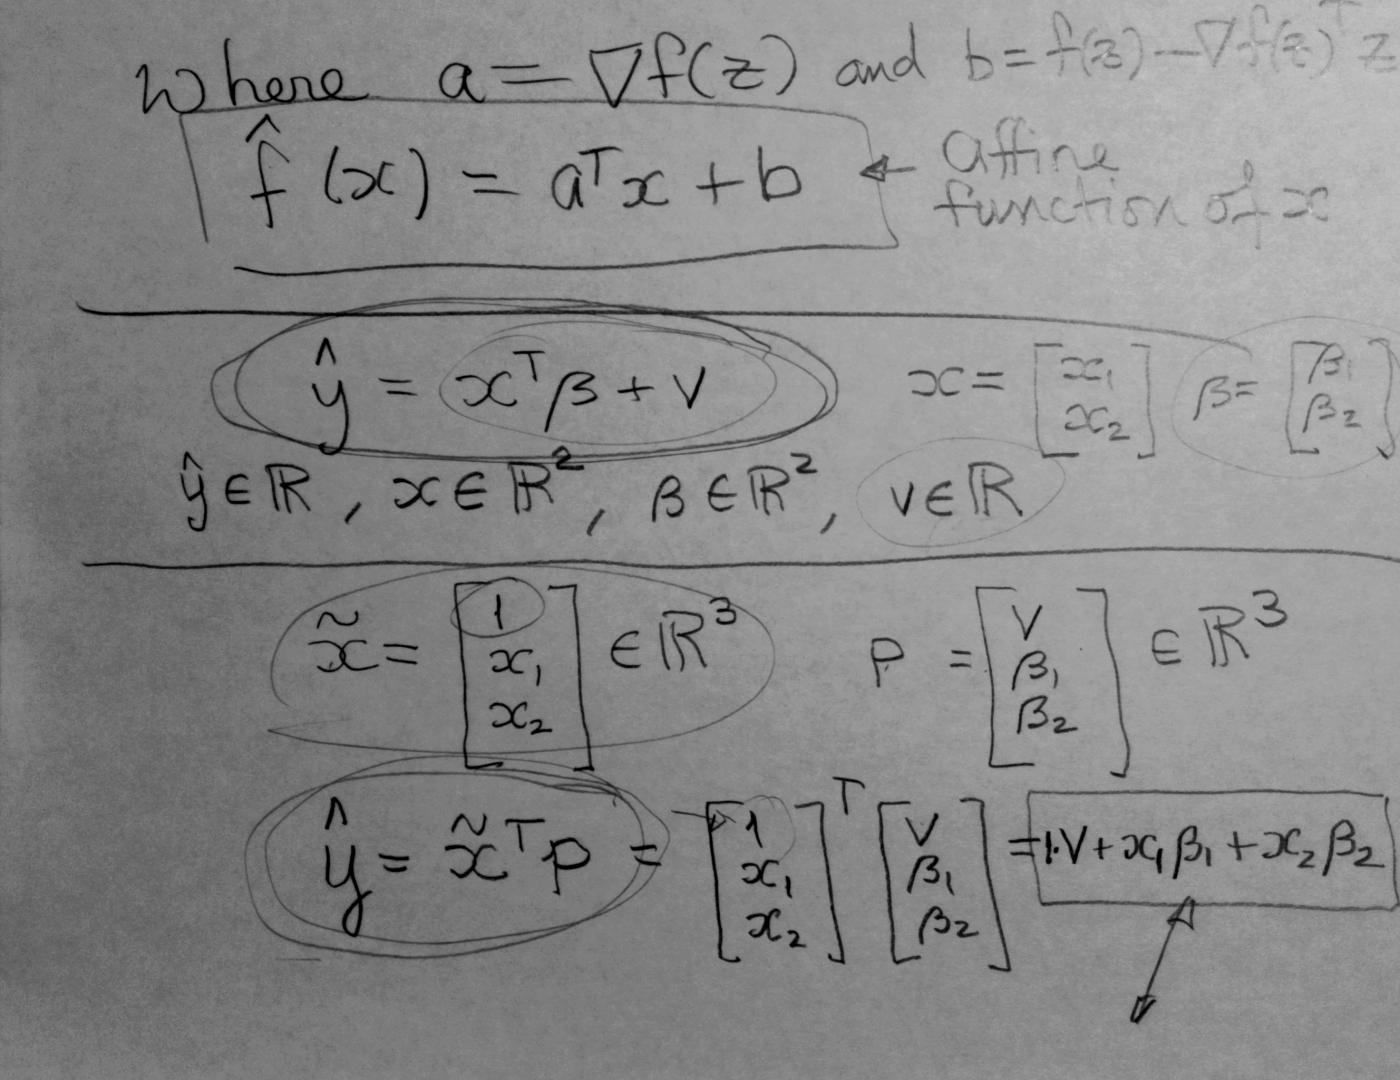 where a = ∇f(z) and b = f(z) − ∇f(z)ᵀ z
f̂(x) = aᵀx + b ← affine function of x
ŷ = xᵀβ + v x = [x₁ x₂] β = [β₁ β₂]
ŷ ∈ ℝ, x ∈ ℝ², β ∈ ℝ², v ∈ ℝ
x̃ = [1 x₁ x₂] ∈ ℝ³ P = [v β₁ β₂] ∈ ℝ³
ŷ = x̃ᵀP = [1 x₁ x₂]ᵀ [v β₁ β₂] = 1·v + x₁β₁ + x₂β₂